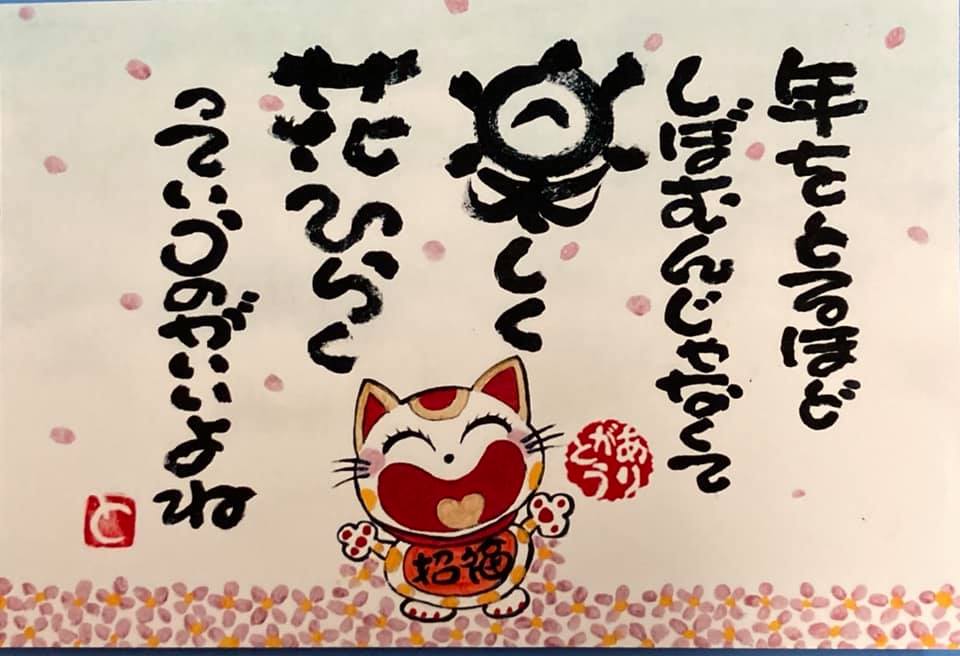 年をとるほど
しぼむんじゃなくて
楽しく
花ひらく
っていうのがいいよね
ありがとう
招福
と